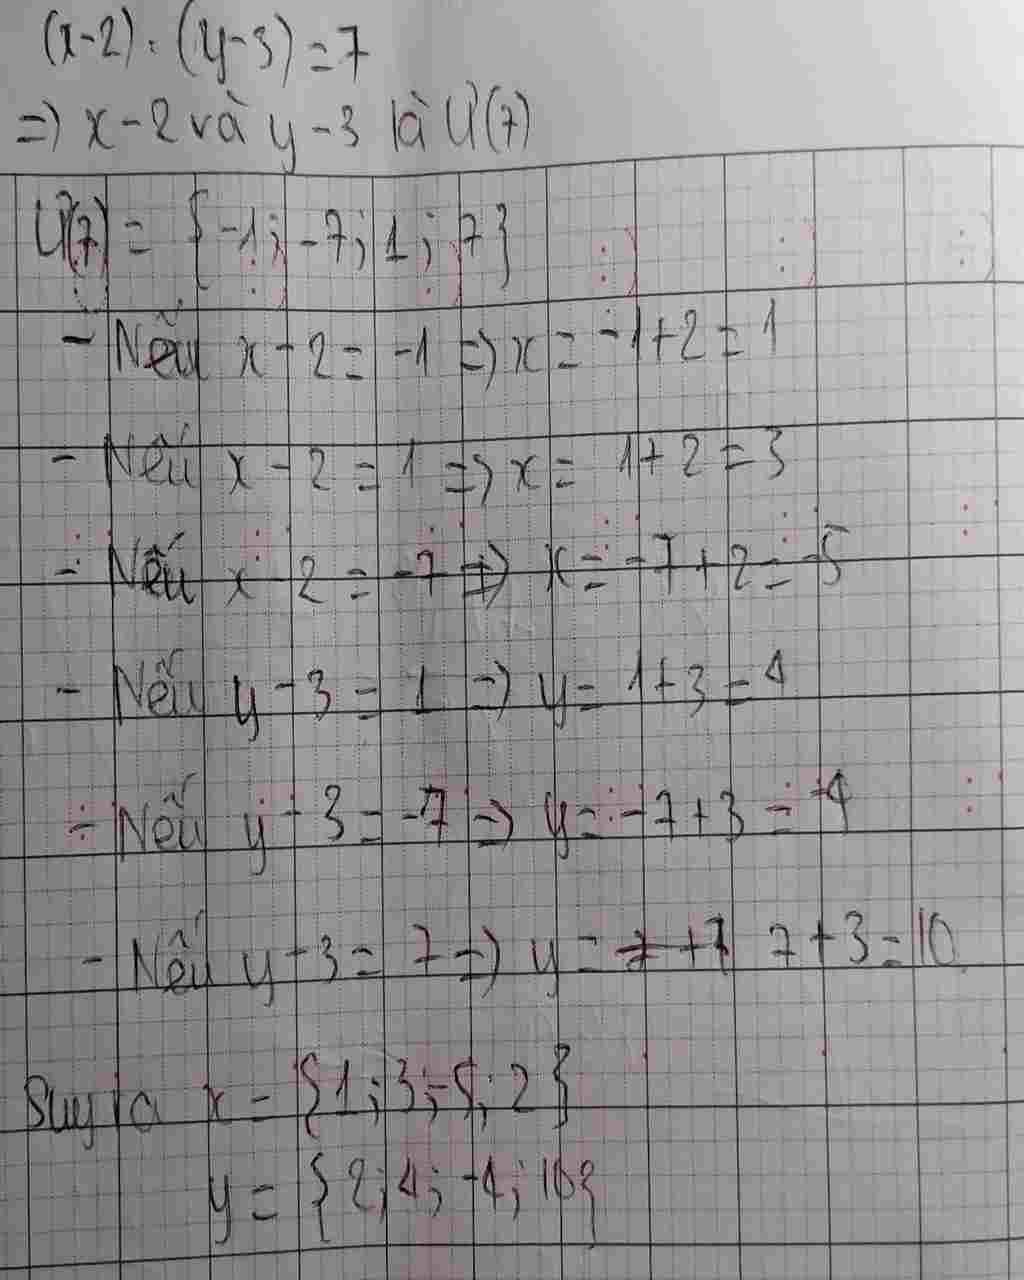 (x-2).(y-3)=7
=) x-2 và y-3 là Ư(7)
Ư(7) = {-1; -7; 1; 7}
- Nếu x-2 = -1 =) x = -1+2 = 1
- Nếu x-2 = 1 =) x = 1+2 = 3
- Nếu x-2 = -7 =) x = -7+2 = -5
- Nếu y-3 = 1 =) y = 1+3 = 4
- Nếu y-3 = -7 =) y = -7+3 = -4
- Nếu y-3 = 7 =) y = 7+3 = 10
Suy ra x = {1; 3; -5; 2}
y = {2; 4; -4; 10}